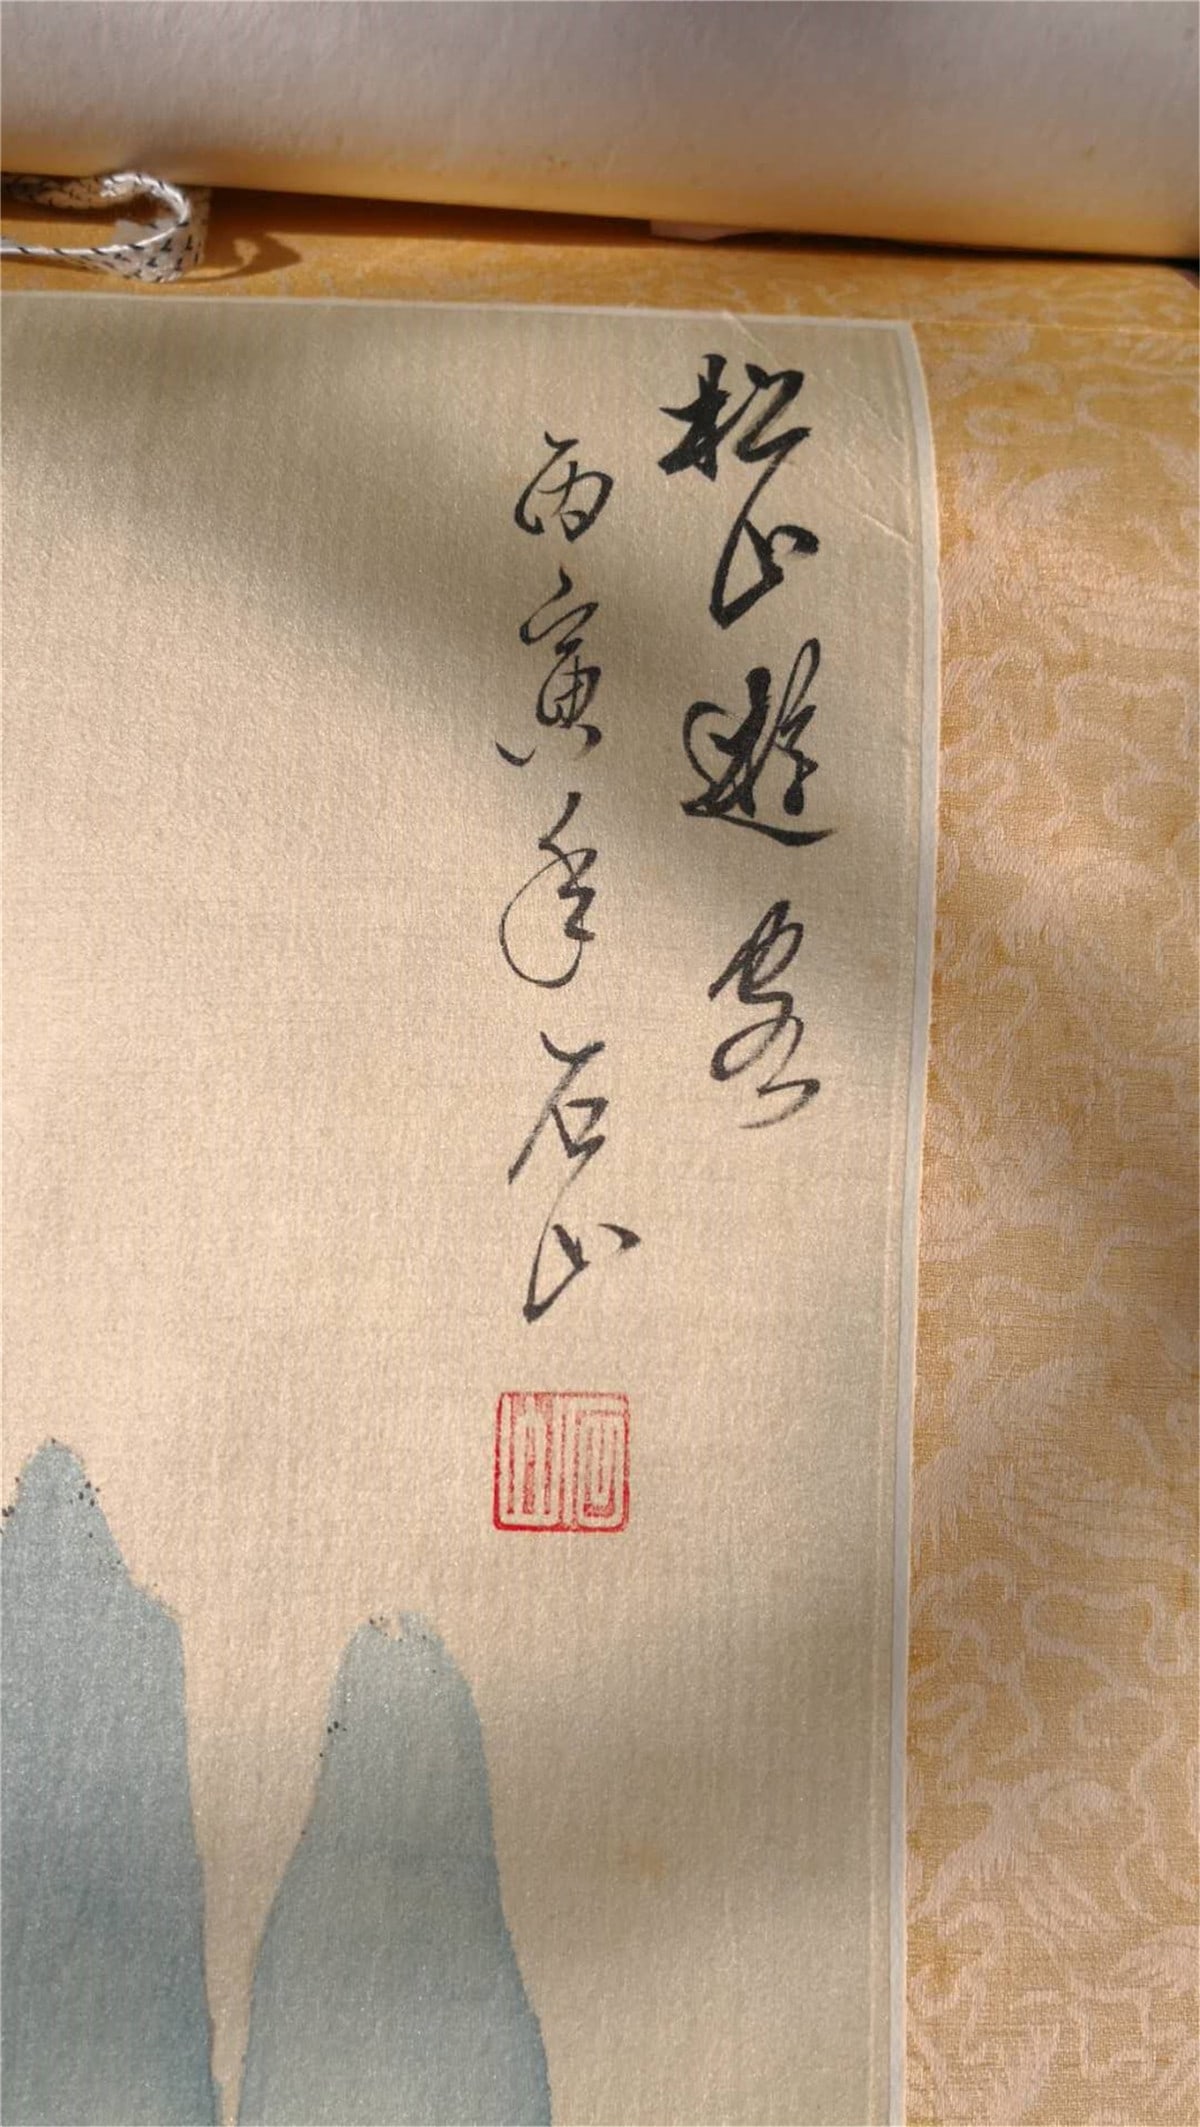 松山遊客
丙寅年石山
石山